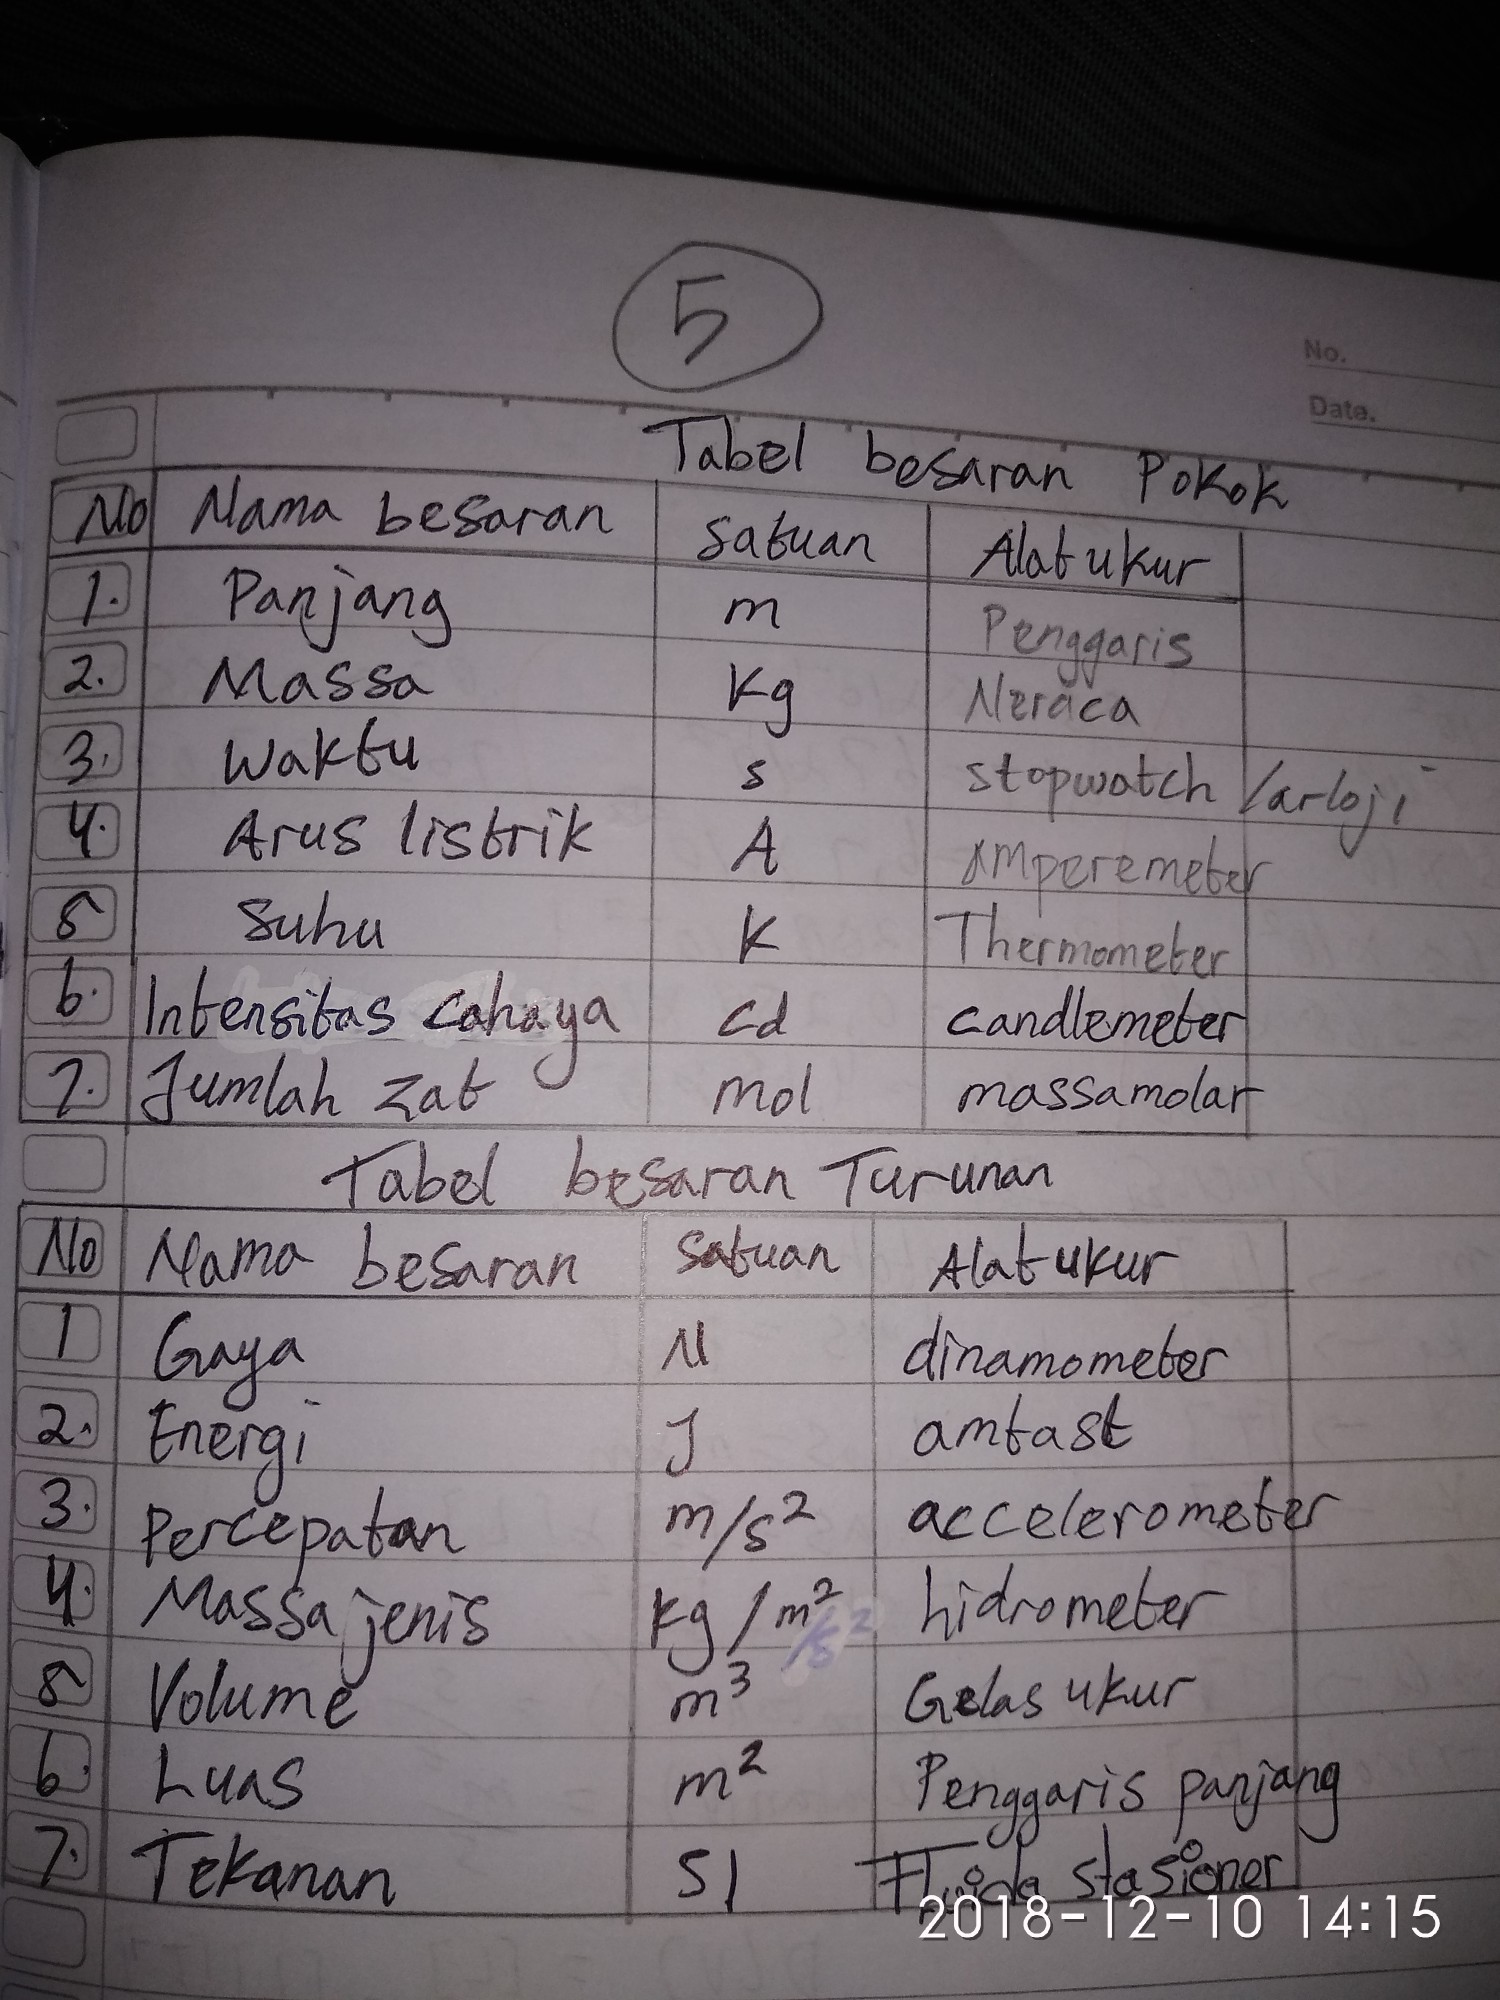 5
No.
Date.
Tabel besaran Pokok
No Nama besaran Satuan Alat ukur
1. Panjang m Penggaris
2. Massa Kg Neraca
3. Waktu s stopwatch /arloji
4. Arus listrik A amperemeter
5 Suhu K Thermometer
6. Intensitas Cahaya Cd candlemeter
7. Jumlah zat mol massamolar
Tabel besaran Turunan
No Nama besaran Satuan Alat ukur
1 Gaya N dinamometer
2. Energi J amtast
3. Percepatan m/s² accelerometer
4. Massa jenis kg/m² hidrometer
5 Volume m³ Gelas ukur
6. Luas m² Penggaris panjang
7. Tekanan SI Fluida stasioner
2018-12-10 14:15